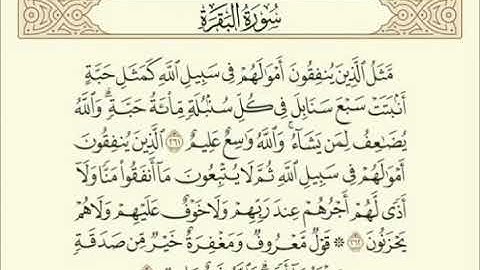 سُورَةُ البَقَرَةِ
مَّثَلُ الَّذِينَ يُنفِقُونَ أَمْوَالَهُمْ فِي سَبِيلِ اللَّهِ كَمَثَلِ حَبَّةٍ
أَنۢبَتَتْ سَبْعَ سَنَابِلَ فِي كُلِّ سُنۢبُلَةٍ مِّا۟ئَةُ حَبَّةٍ ۗ وَاللَّهُ
يُضَاعِفُ لِمَن يَشَآءُ ۚ وَاللَّهُ وَاسِعٌ عَلِيمٌ ٢٦١ الَّذِينَ يُنفِقُونَ
أَمْوَالَهُمْ فِي سَبِيلِ اللَّهِ ثُمَّ لَا يُتْبِعُونَ مَآ أَنفَقُوا۟ مَنًّا وَلَآ
أَذًى لَّهُمْ أَجْرُهُمْ عِندَ رَبِّهِمْ وَلَا خَوْفٌ عَلَيْهِمْ وَلَا هُمْ
يَحْزَنُونَ ٢٦٢ ۞ قَوْلٌ مَّعْرُوفٌ وَمَغْفِرَةٌ خَيْرٌ مِّن صَدَقَةٍ